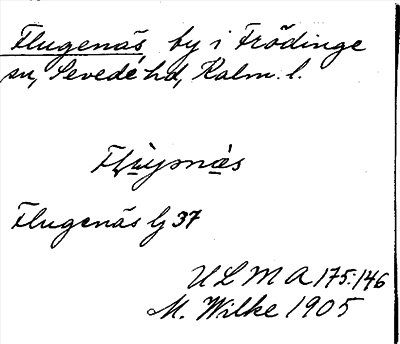 Flugenäs, by i Frödinge
sn, Sevede hd, Kalm. l.
Flugenäs lj 37
ULMA 175:146
M. Wilke 1905